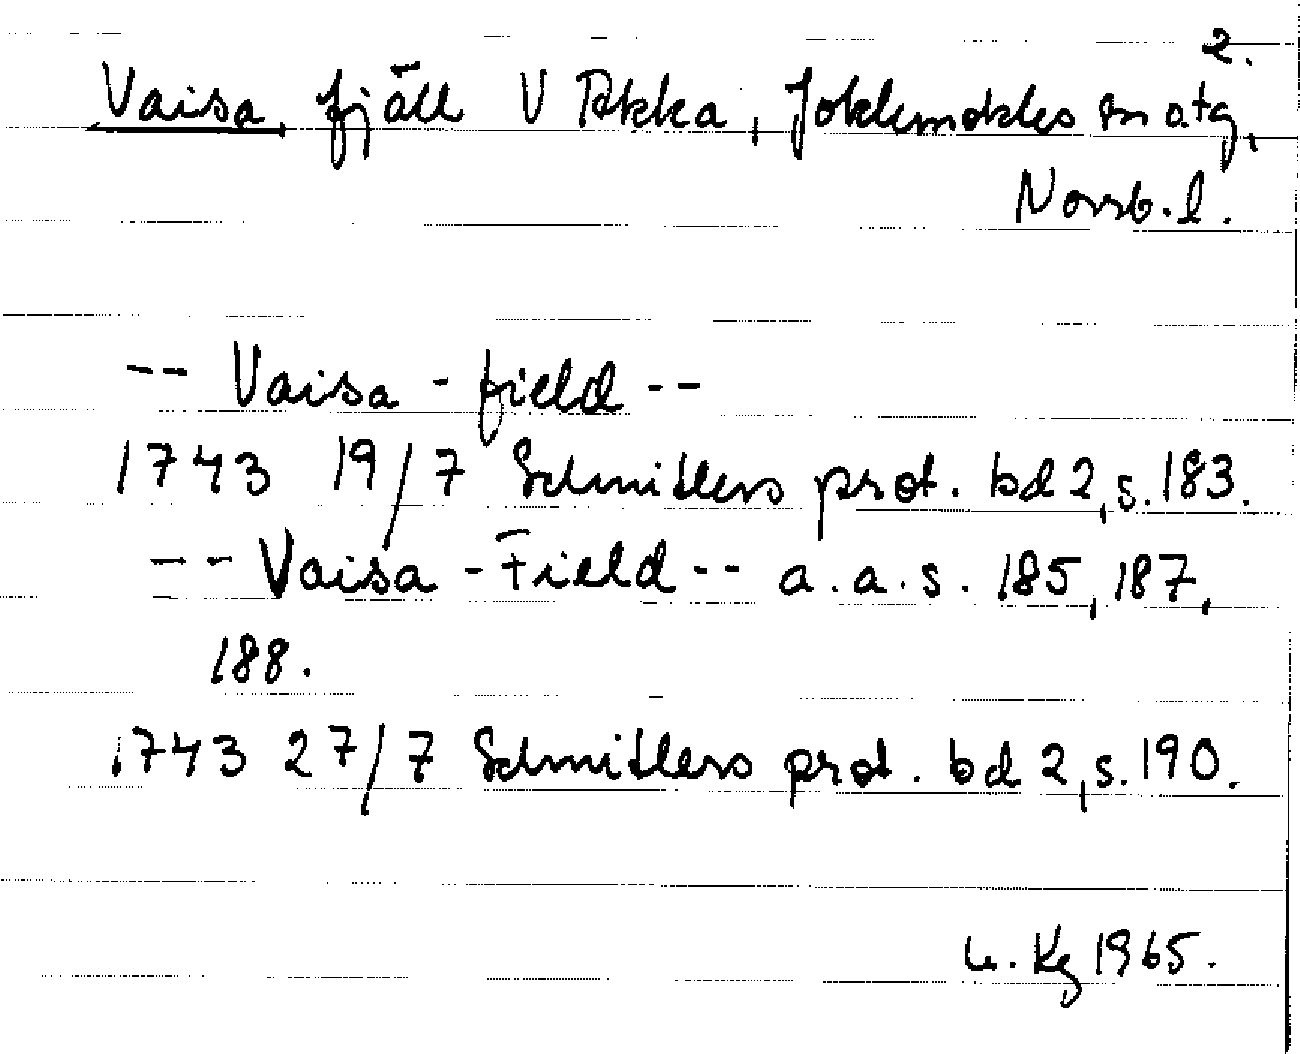 2.
Vaisa, fjäll V Akka, Jokkmokks sn o.tg,
Norrb.l.
-- Vaisa-field --
1743 19/7 Schnitlers prot. bd 2, s. 183.
-- Vaisa-Field -- a.a.s. 185, 187,
188.
1743 27/7 Schnitlers prot. bd 2, s. 190.
Kg 1965.